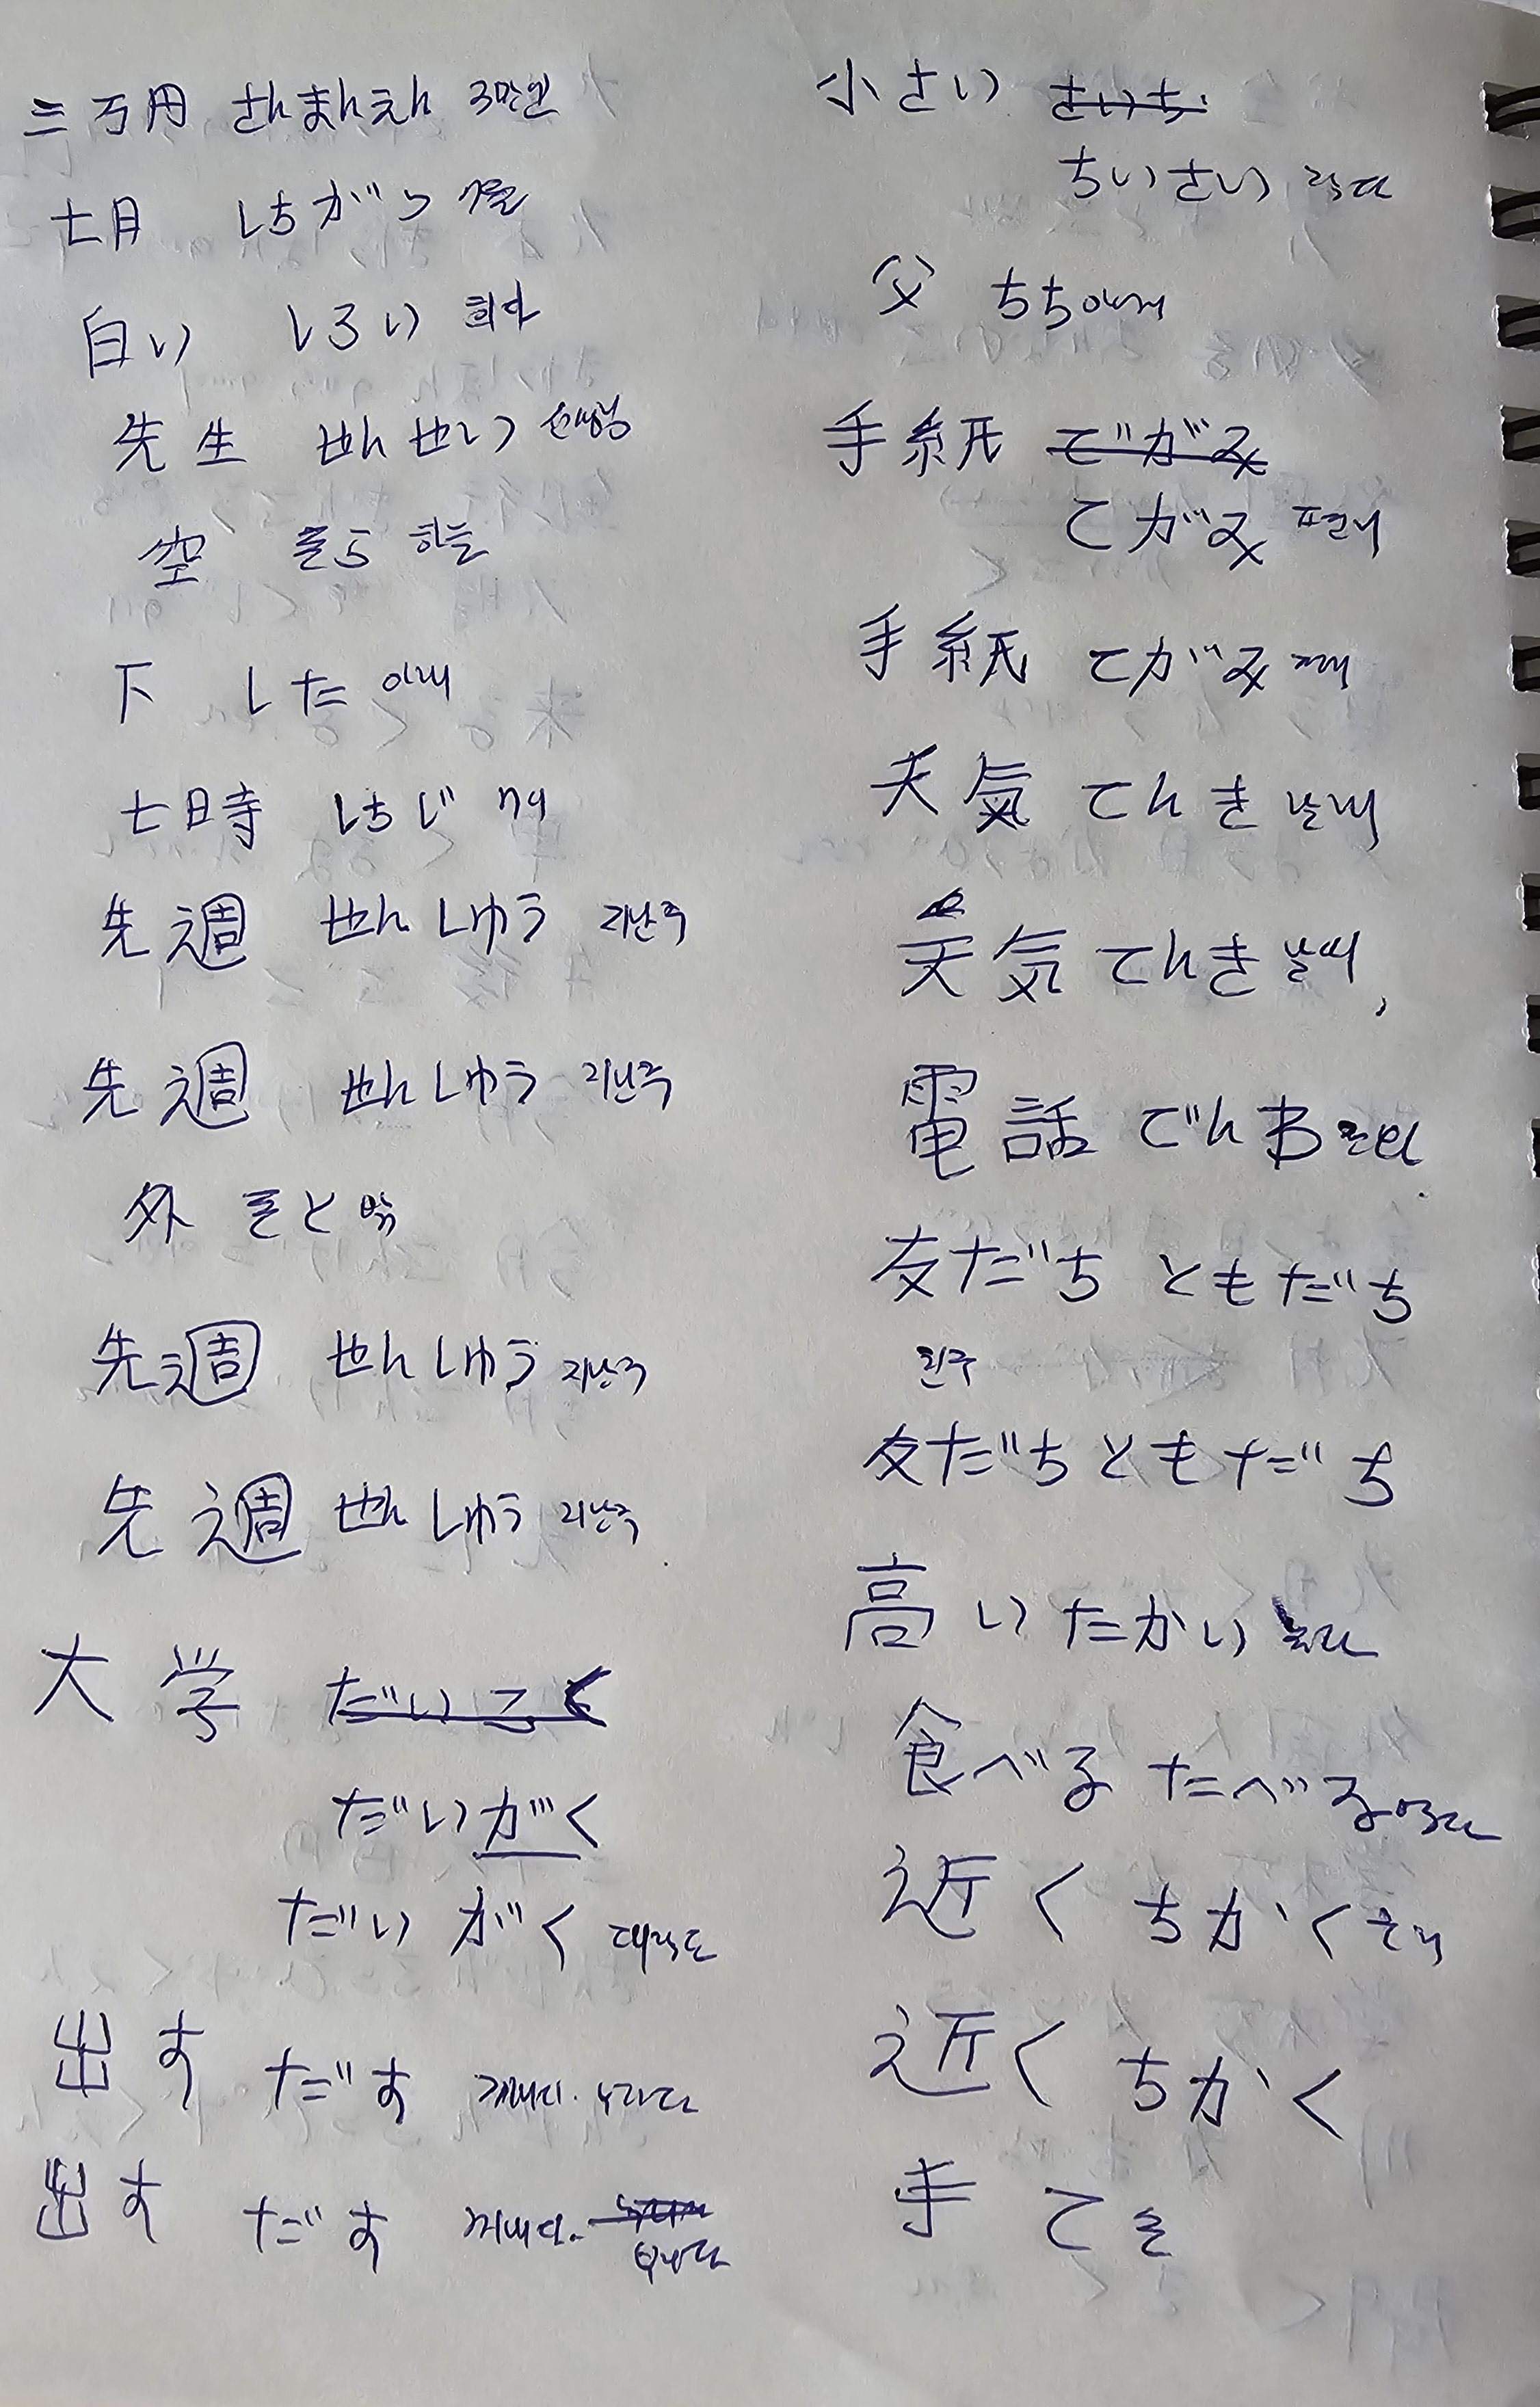 三万円 さんまんえん 3만엔
七月 しちがつ 7월
白い しろい 희다
先生 せんせい 선생님
空 そら 하늘
下 した 아래
七時 しちじ 7시
先週 せんしゅう 지난주
先週 せんしゅう 지난주
外 そと 밖
先週 せんしゅう 지난주
先週 せんしゅう 지난주
大学 だいごく
だいがく
だいがく 대학교
出す だす 꺼내다.
出す だす 꺼내다.
小さい さいち
ちいさい 작다
父 ちち 아버지
手紙 でがみ
てがみ 편지
手紙 てがみ 편지
天気 てんき 날씨
天気 てんき 날씨
電話 でんわ 전화
友だち ともだち
친구
友だち ともだち
高い たかい 높다
食べる たべる 먹다
近く ちかく 근처
近く ちかく
手 て 손